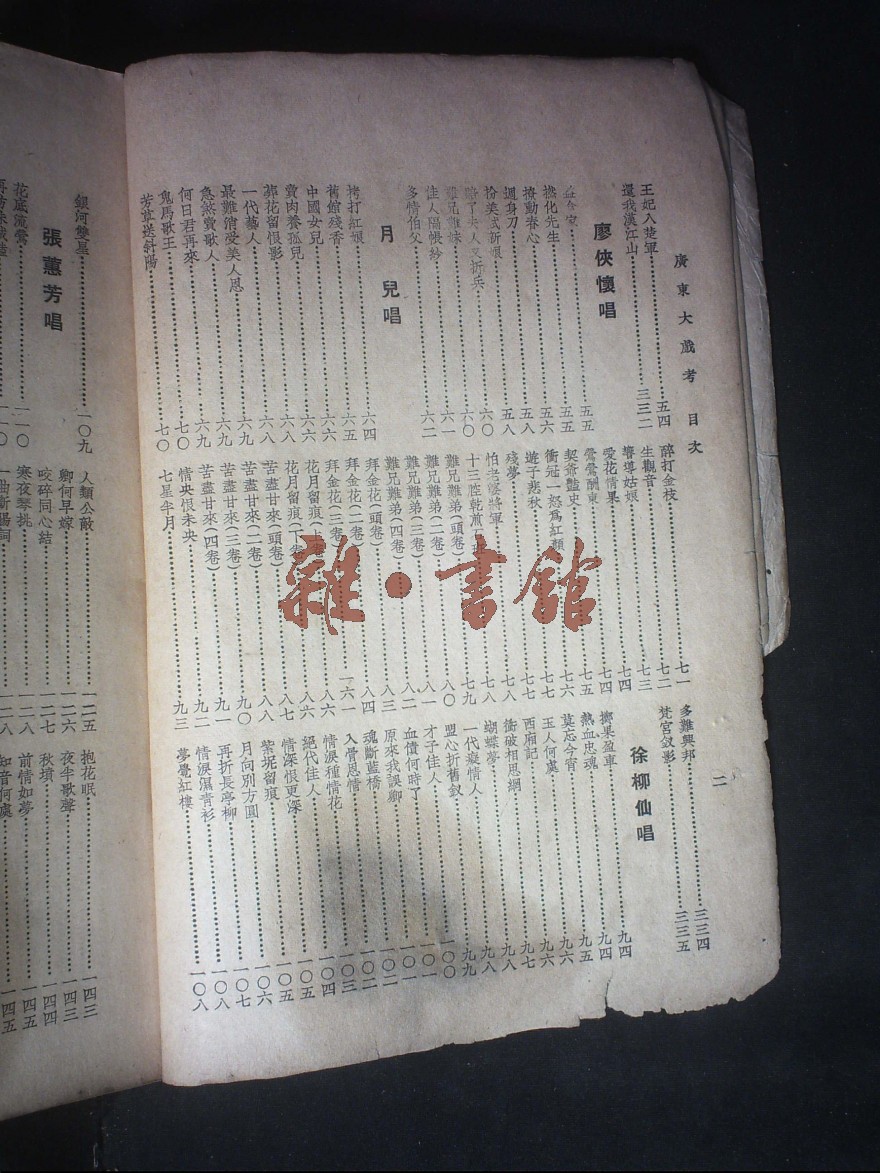 廣東大戲考 目次
二
王妃入楚軍 五四
還我漢江山 三三二
廖俠懷唱
五五
撚化先生 五五
撩動春心 五六
週身刀 五八
扮美式新娘 五八
賠了夫人又折兵 六〇
難兄難妹 六〇
佳人隔帳紗 六一
多情伯父 六二
月兒唱
拷打紅娘 六四
舊館殘香 六五
中國女兒 六六
賣肉養孤兒 六六
葬花留恨影 六八
一代藝人 六八
最難消受美人恩 六九
急煞賣歌人 六九
何日君再來 六九
鬼馬歌王 七〇
芳草送斜陽 七〇
醉打金枝 七一
生觀音 七二
響導姑娘 七三
愛花情果 七四
鶯鶯酬東 七四
契爺艷史 七五
衝冠一怒為紅顏 七六
遊子悲秋 七七
殘夢 七八
怕老婆將軍 七八
十三陛乾煎 七九
難兄難弟(頭卷) 八〇
難兄難弟(二卷) 八一
難兄難弟(三卷) 八二
難兄難弟(四卷) 八三
拜金花(頭卷) 八四
拜金花(二卷) 一六一
拜金花(三卷) 八六
花月留痕(上卷) 八六
花月留痕(下卷) 八七
苦盡甘來(頭卷) 八八
苦盡甘來(二卷) 九〇
苦盡甘來(三卷) 九一
苦盡甘來(四卷) 九一
情央恨未央 九二
七星半月 九三
多難興邦 三三四
梵宮釵影 三三五
徐柳仙唱
擲果盈車 九四
熱血忠魂 九四
莫忘今宵 九五
玉人何處 九六
西廂記 九六
衝破相思網 九七
蝴蝶夢 九八
一代癡情人 九八
盟心折舊釵 九九
才子佳人 一〇〇
血債何時了 一〇一
原來我誤卿 一〇二
魂斷藍橋 一〇二
入骨恩情 一〇三
情淚種情花 一〇四
絕代佳人 一〇五
情深恨更深 一〇五
紫坭留痕 一〇六
月向別方圓 一〇七
再折長亭柳 一〇七
情淚濕青衫 一〇八
夢覺紅樓 一〇八
銀河雙星 一〇九
張蕙芳唱
花底流鶯 一一〇
人類公敵 一二五
卿何早嫁 一二六
咬碎同心結 一二七
寒夜琴挑 一二八
抱花眠 一四三
夜半歌聲 一四三
秋墳 一四四
前情如夢 一四五
知音何處 一四五
雜·書館